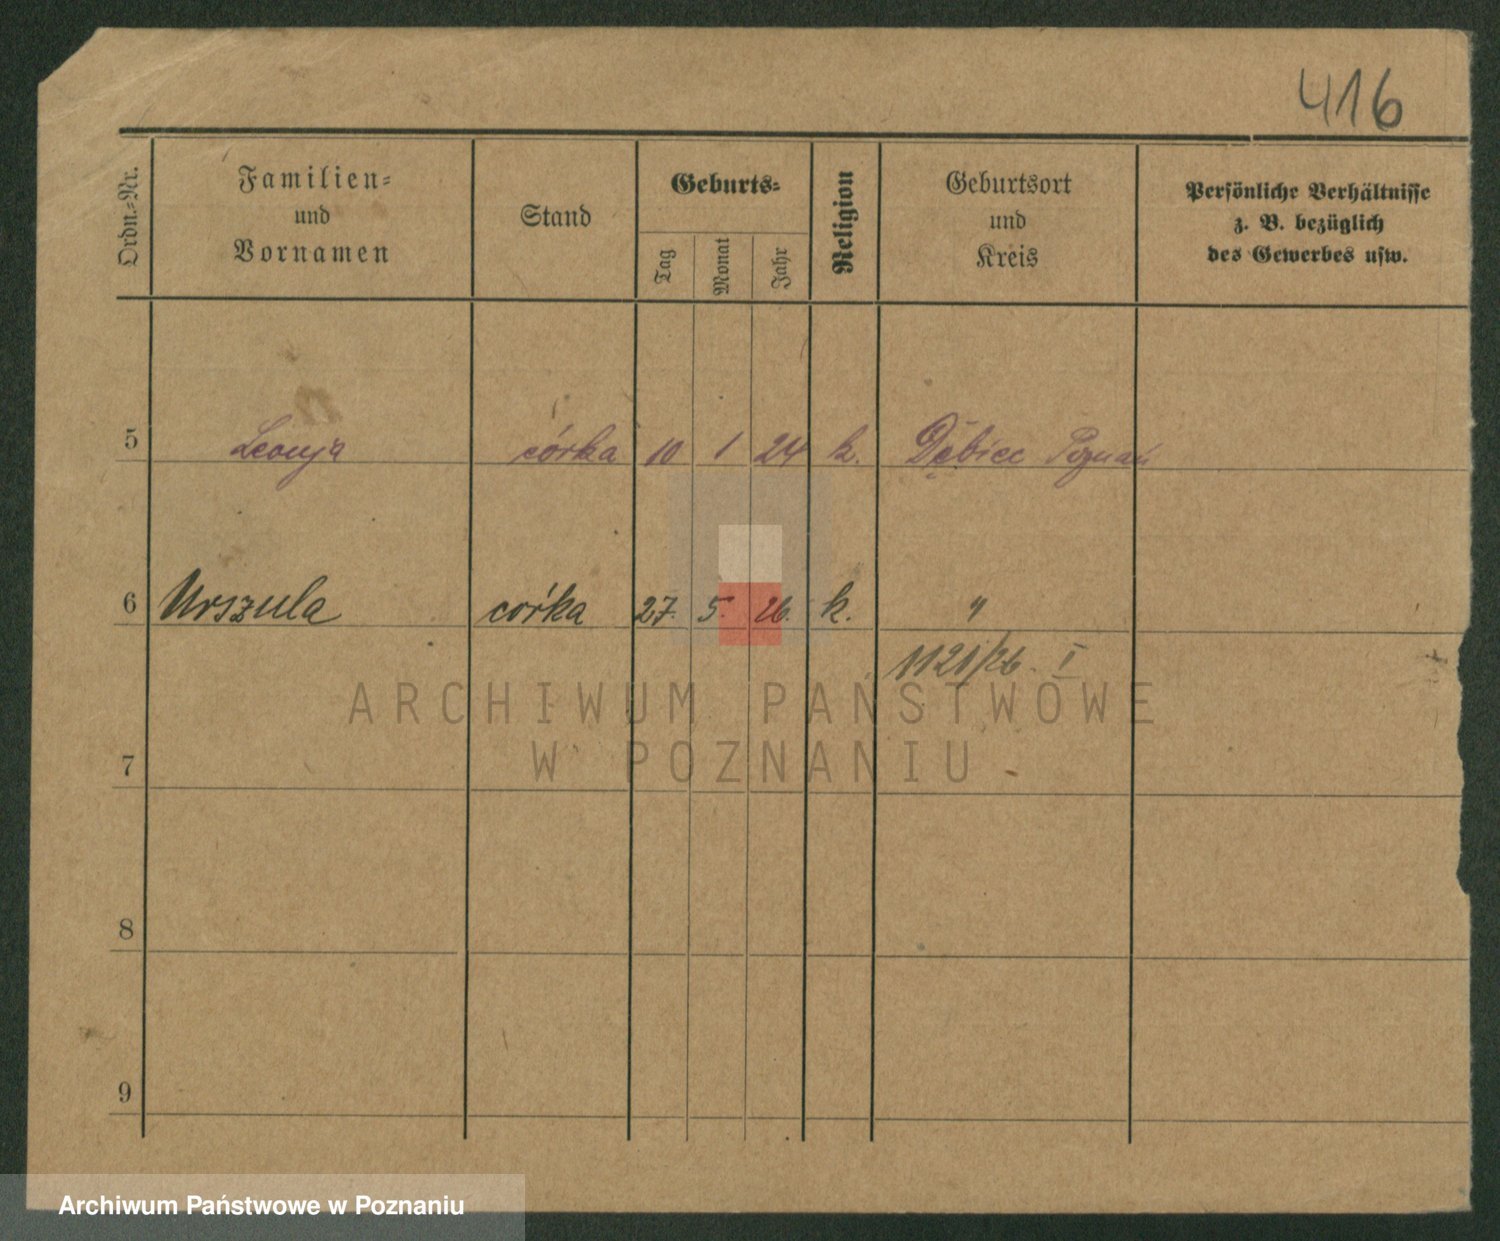 416
Ordn.-Nr.
Familien-
und
Vornamen
Stand
Geburts-
Tag
Monat
Jahr
Religion
Geburtsort
und
Kreis
Persönliche Verhältnisse
z. B. bezüglich
des Gewerbes usw.
5 Leonja córka 10 1 24 k. Dębiec Poznań
6 Urszula corka 27. 5. 26. k. "
1121/26. I
7
8
9
ARCHIWUM PAŃSTWOWE
W POZNANIU
Archiwum Państwowe w Poznaniu